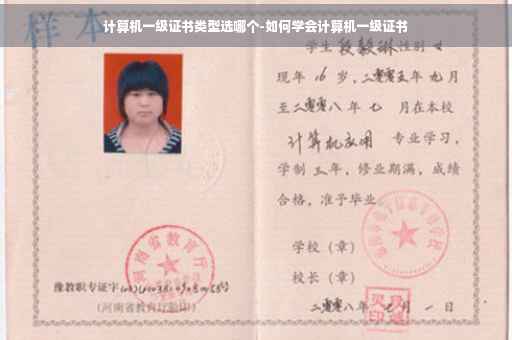 计算机一级证书类型选哪个-如何学会计算机一级证书
样本
学生 段毅琳 性别 女
现年 16 岁，二零零五年 九 月
至二零零八年 七 月在本校
计算机应用 专业学习，
学制 三 年，修业期满，成绩
合格，准予毕业
学校（章）
校长（章）
二零零八年 月 一 日
河南省教育厅
豫教职专证字
（河南省教育厅验印）